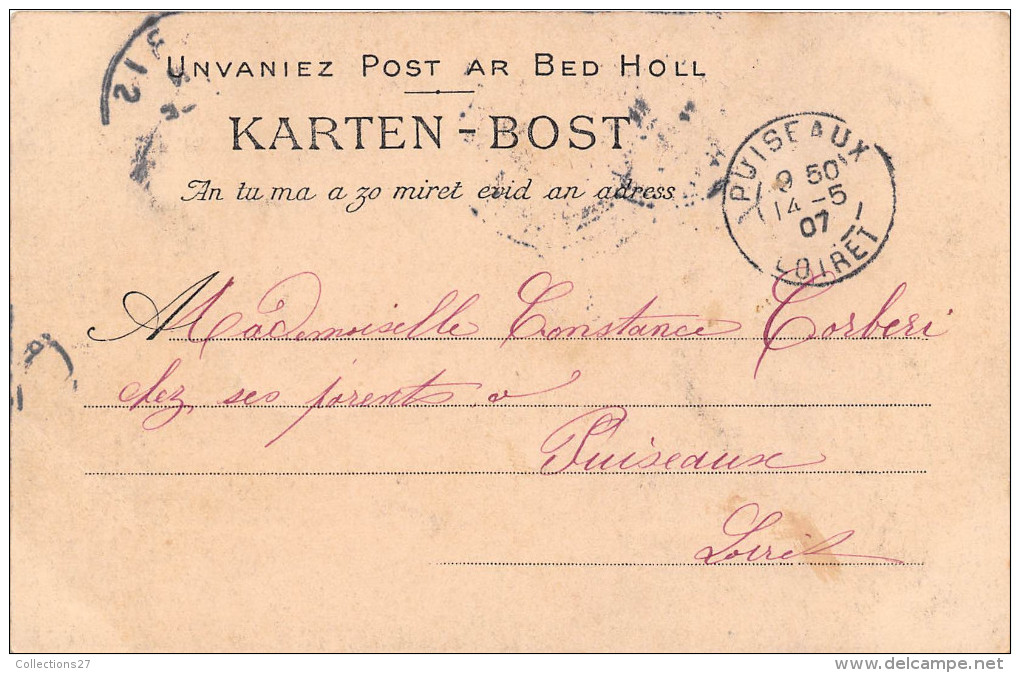 UNVANIEZ POST AR BED HOLL
KARTEN-BOST
An tu ma a zo miret evid an adress
PUISEAUX
9 50
14-5
07
LOIRET
A Mademoiselle Constance Corberi
chez ses parents a
Puiseaux
Loiret
Collections27
delcampe.net